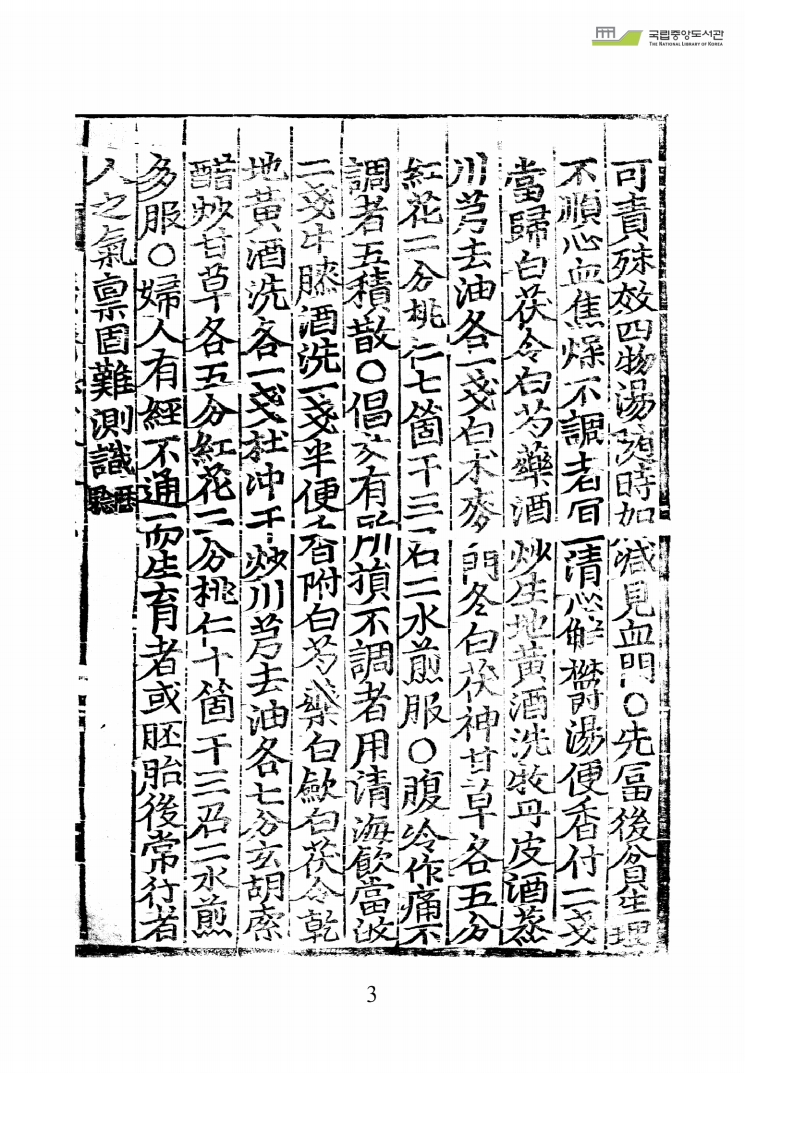 국립중앙도서관
THE NATIONAL LIBRARY OF KOREA
可責殊效四物湯随時如减見血門○先富後貧生理
不順心血焦燥不調者冝一清心解欝湯便香付二戔
當歸白茯令白芍藥酒炒生地黃酒洗牧丹皮酒蒸
川芎去油各一戔白朮麥門冬白茯神甘草各五分
紅花二分桃仁七箇干三召二水煎服○腹冷作痛不
調者五積散○倡女有所損不調者用清海飮當故
二戔牛膝酒洗一戔半便香附白芍藥白歛白茯令乾
地黃酒洗各一戔杜冲干炒川芎去油各七分玄胡索
醋炒甘草各五分紅花二分桃仁十箇干三召二水煎
多服○婦人有經不通而生育者或胚胎後常行者
人之氣禀固難測識
3